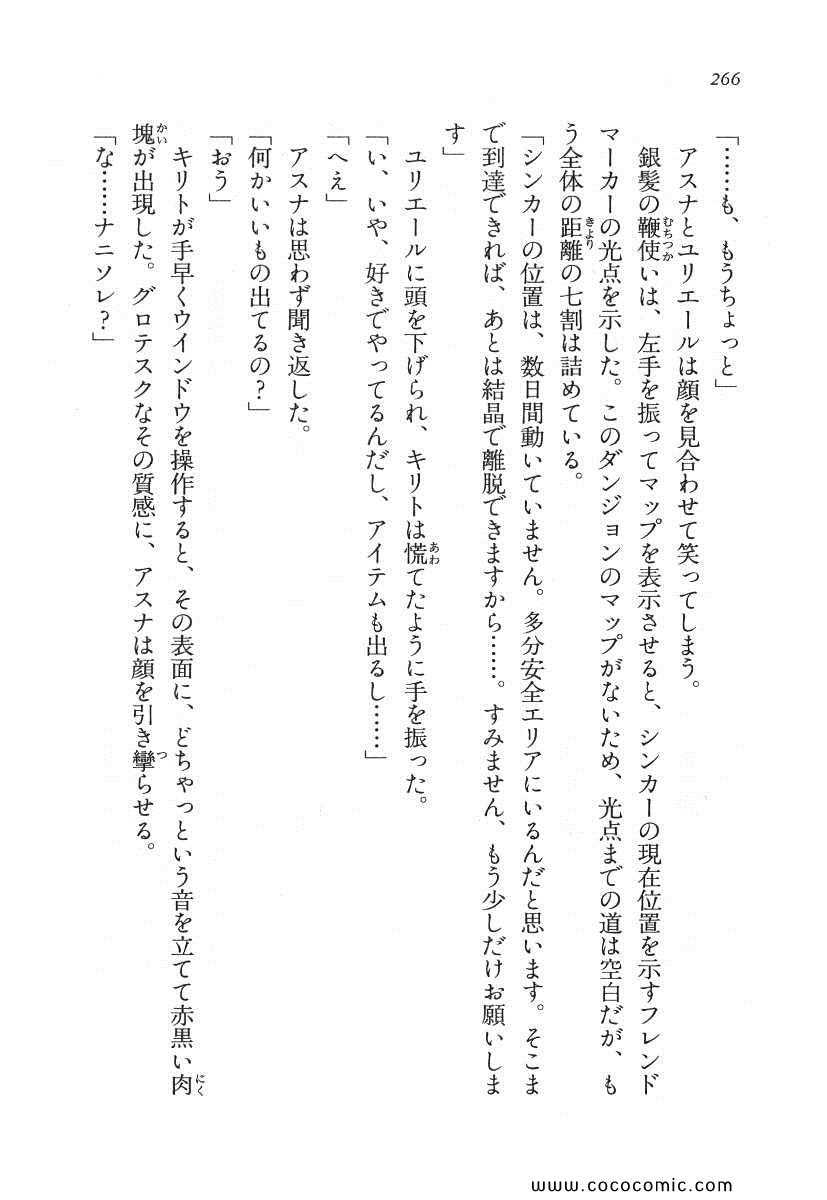 266
「……も、もうちょっと」
　アスナとユリエールは顔を見合わせて笑ってしまう。
　銀髪の鞭使いは、左手を振ってマップを表示させると、シンカーの現在位置を示すフレンド
マーカーの光点を示した。このダンジョンのマップがないため、光点までの道は空白だが、も
う全体の距離の七割は詰めている。
「シンカーの位置は、数日間動いていません。多分安全エリアにいるんだと思います。そこま
で到達できれば、あとは結晶で離脱できますから……。すみません、もう少しだけお願いしま
す」
　ユリエールに頭を下げられ、キリトは慌てたように手を振った。
「い、いや、好きでやってるんだし、アイテムも出るし……」
「へえ」
　アスナは思わず聞き返した。
「何かいいもの出てるの？」
「おう」
　キリトが手早くウインドウを操作すると、その表面に、どちゃっという音を立てて赤黒い肉
塊が出現した。グロテスクなその質感に、アスナは顔を引き攣らせる。
「な……ナニソレ？」
www.cococomic.com